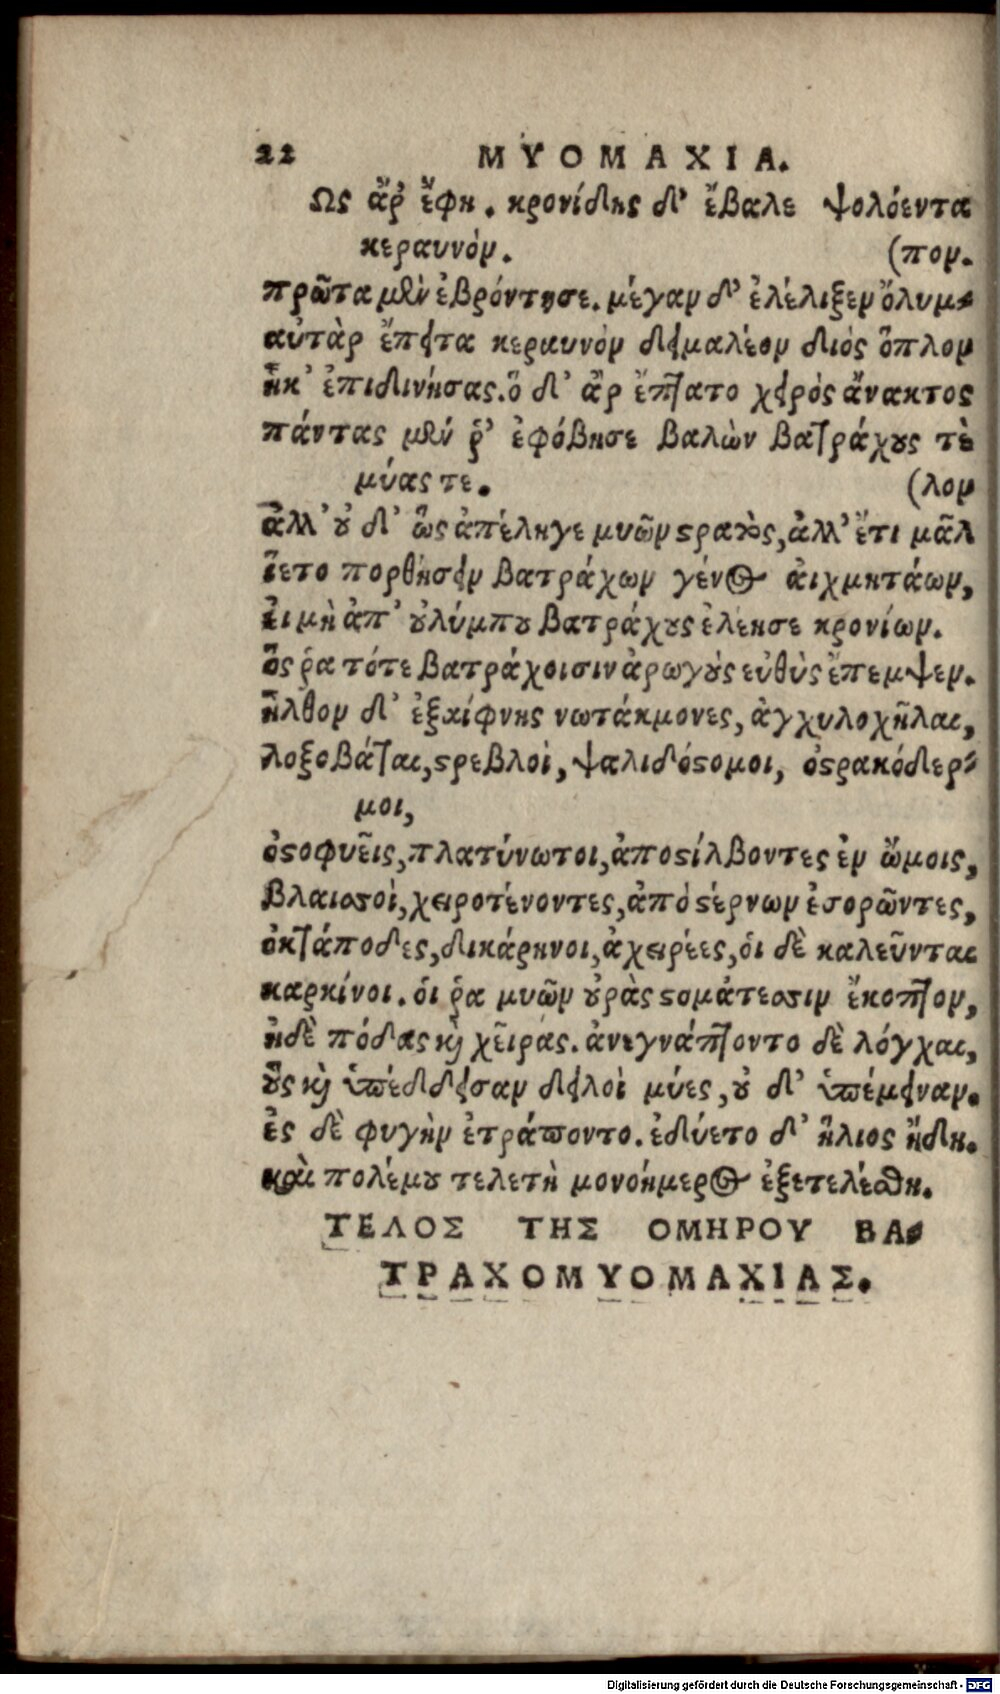 22 ΜΥΟΜΑΧΙΑ.
Ως ἄρ ἔφη. κρονίδης δ' ἔβαλε ψολόεντα
κεραυνόν. (πον.
πρῶτα μὲν ἐβρόντησε. μέγαν δ' ἐλέλιξεν ὄλυμ-
αὐτὰρ ἔπειτα κεραυνὸν δειμαλέον διὸς ὅπλον
ἧκ' ἐπιδινήσας. ὁ δ' ἂρ ἔπτατο χειρὸς ἄνακτος
πάντας μὲν ῥ' ἐφόβησε βαλὼν βατράχους τὲ
μύας τε. (λον
ἀλλ' οὐ δ' ὣς ἀπέληγε μυῶν στρατὸς, ἀλλ' ἔτι μᾶλ
ἵετο πορθήσειν βατράχων γένος αἰχμητάων,
εἰ μὴ ἀπ' οὐλύμπου βατράχους ἐλέησε κρονίων.
ὅς ῥα τότε βατράχοισιν ἀρωγοὺς εὐθὺς ἔπεμψεν.
ἦλθον δ' ἐξαίφνης νωτάκμονες, ἀγχυλοχῆλαι,
λοξοβάται, στρεβλοὶ, ψαλιδόστομοι, ὀστρακόδερ-
μοι,
ὀστοφυεῖς, πλατύνωτοι, ἀποστίλβοντες ἐν ὤμοις,
βλαισοὶ, χειροτένοντες, ἀπὸ στέρνων ἐσορῶντες,
ὀκτάποδες, δικάρηνοι, ἀχειρέες, οἱ δὲ καλεῦνται
καρκίνοι. οἵ ῥα μυῶν οὐρὰς στομάτεσσιν ἔκοπτον,
ἠδὲ πόδας καὶ χεῖρας. ἀνεγνάπτοντο δὲ λόγχαι,
οὓς καὶ ὑπέδδεισαν δειλοὶ μύες, οὐ δ' ὑπέμειναν.
ἐς δὲ φυγὴν ἐτράποντο. ἐδύετο δ' ἥλιος ἤδη.
καὶ πολέμου τελετὴ μονοήμερος ἐξετελέσθη.
ΤΕΛΟΣ ΤΗΣ ΟΜΗΡΟΥ ΒΑ-
ΤΡΑΧΟΜΥΟΜΑΧΙΑΣ.
Digitalisierung gefördert durch die Deutsche Forschungsgemeinschaft - DFG